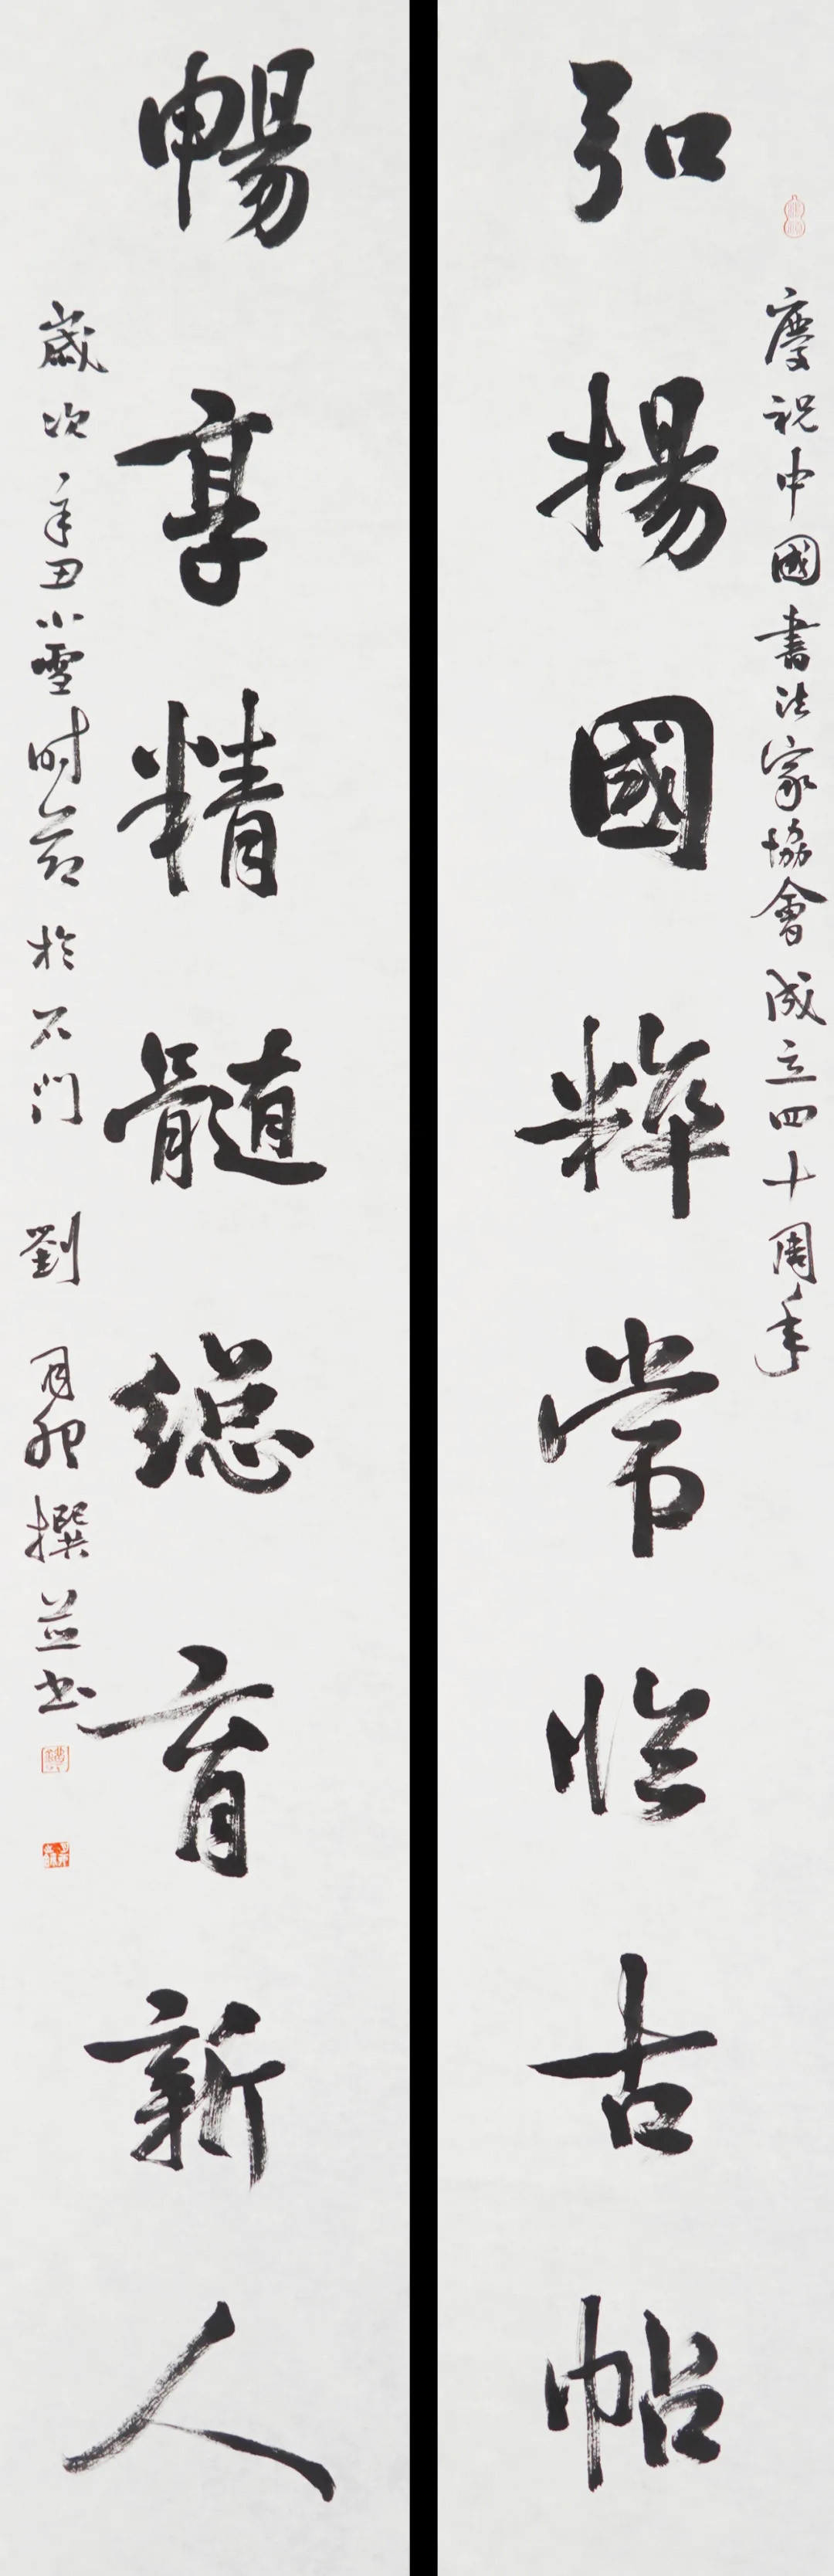 慶祝中國書法家協會成立四十周年
弘揚國粹常臨古帖
暢享精髓總育新人
歲次辛丑小雪时節於石门 劉月卯撰並书